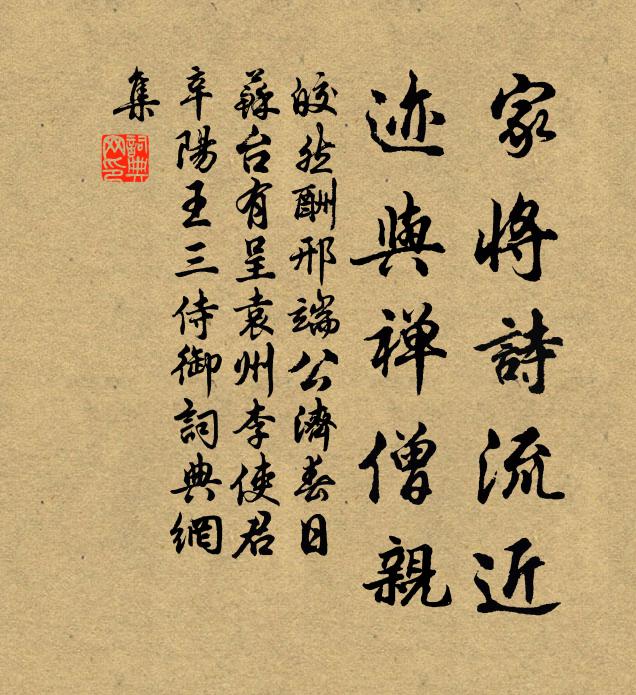 家將詩流近
迹與禪僧親
皎然酬邢端公濟春日
蘇台有呈袁州李使君
辛陽王三侍御詞典網
集
詞典
网印